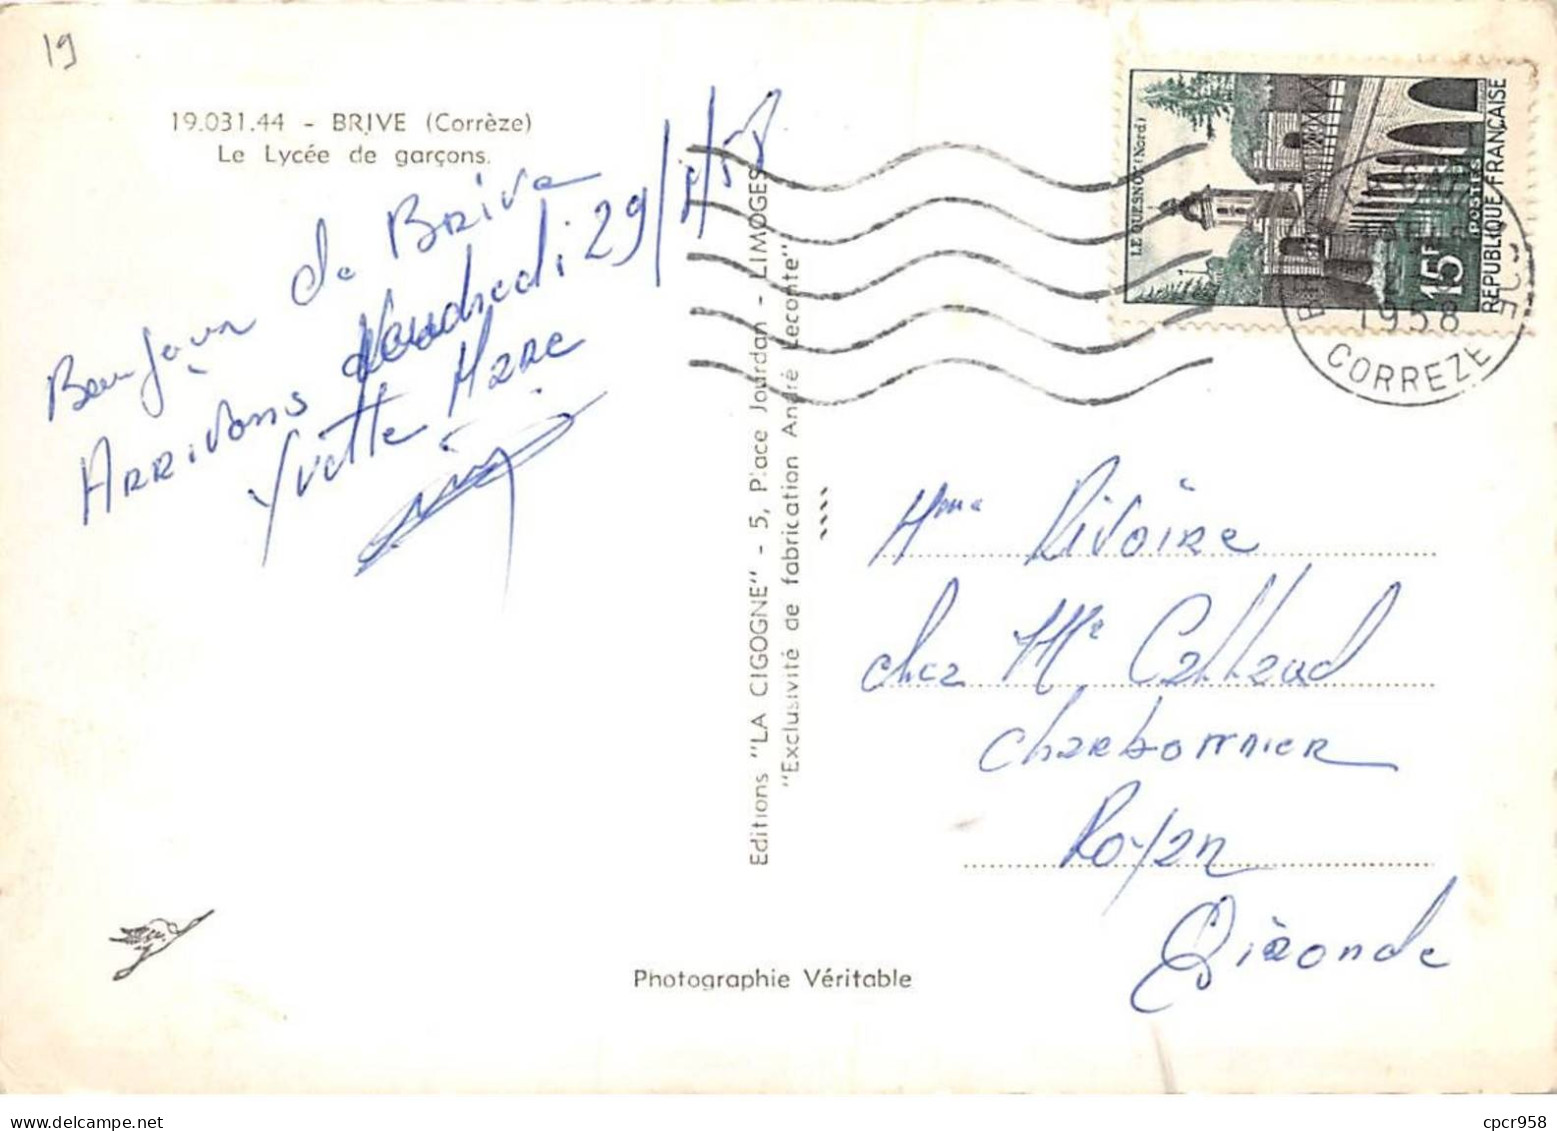 19
19.031.44 - BRIVE (Corrèze)
Le Lycée de garçons.
Bonjour de Brive
Arrivons Vendredi 29/8/58
Yvette Marc
Editions "LA CIGOGNE" - 5, Place Jourdan - LIMOGES
"Exclusivité de fabrication André Leconte"
LE QUESNOY (Nord)
15F
POSTES
REPUBLIQUE FRANÇAISE
1958
CORREZE
Mme Rivoire
chez Mr Callaud
Charbonnier
Royan
Gironde
Photographie Véritable
cpcr958